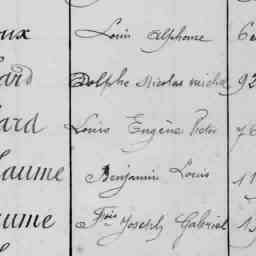 oux Louis Alphonse 6
ard Adolphe Nicolas Michel 92
lard Louis Eugène Victor 76
laume Benjamin Louis 11
aume Fois Joseph Gabriel 15